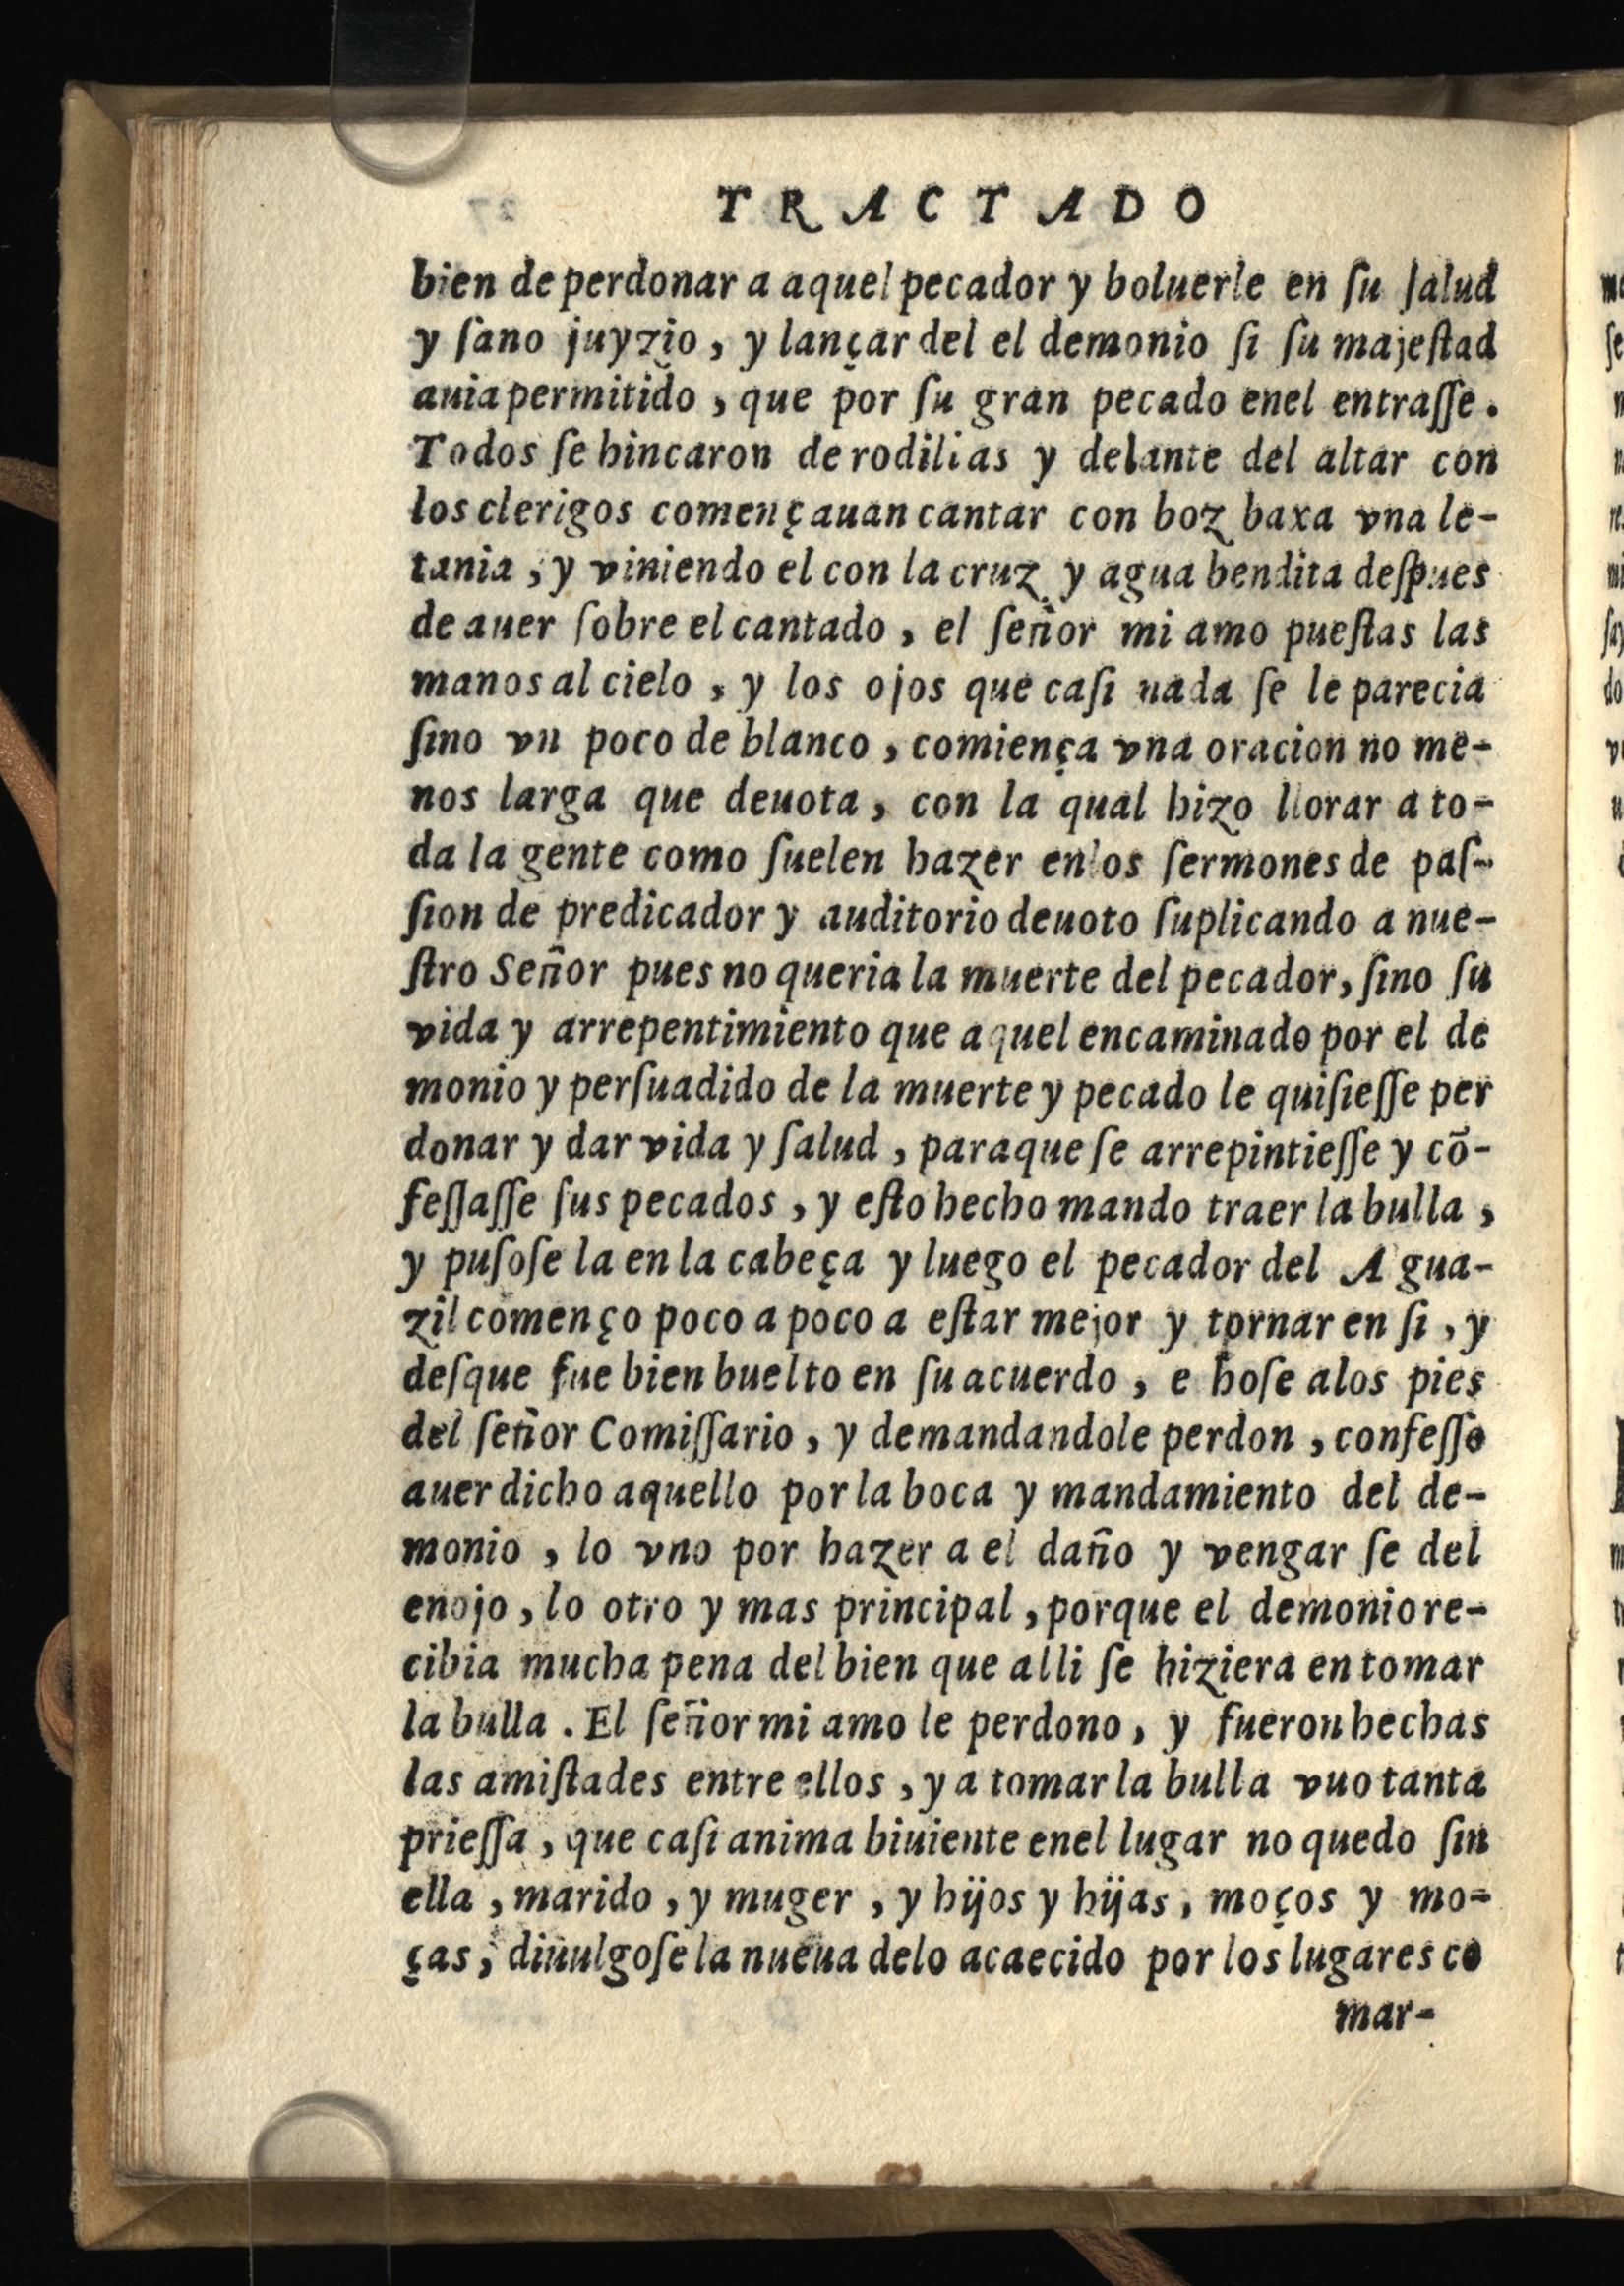 TRACTADO
bien de perdonar a aquel pecador y boluerle en ſu ſalud
y ſano juyzio, y lançar del el demonio ſi ſu majeſtad
auia permitido, que por ſu gran pecado enel entraſſe.
Todos ſe hincaron de rodillas y delante del altar con
los clerigos començauan cantar con boz baxa vna le-
tania, y viniendo el con la cruz y agua bendita deſpues
de auer ſobre el cantado, el ſeñor mi amo pueſtas las
manos al cielo, y los ojos que caſi nada ſe le parecia
ſino vn poco de blanco, comiença vna oracion no me-
nos larga que deuota, con la qual hizo llorar a to-
da la gente como ſuelen hazer enlos ſermones de paſ-
ſion de predicador y auditorio deuoto ſuplicando a nue-
ſtro Señor pues no queria la muerte del pecador, ſino ſu
vida y arrepentimiento que aquel encaminado por el de
monio y perſuadido de la muerte y pecado le quiſieſſe per
donar y dar vida y ſalud, paraque ſe arrepintieſſe y cõ-
feſſaſſe ſus pecados, y eſto hecho mando traer la bulla,
y puſoſe la en la cabeça y luego el pecador del Agua-
zil començo poco a poco a eſtar mejor y tornar en ſi, y
deſque fue bien buelto en ſu acuerdo, e hoſe alos pies
del ſeñor Comiſſario, y demandandole perdon, confeſſo
auer dicho aquello por la boca y mandamiento del de-
monio, lo vno por hazer a el daño y vengar ſe del
enojo, lo otro y mas principal, porque el demonio re-
cibia mucha pena del bien que alli ſe hiziera en tomar
la bulla. El ſeñor mi amo le perdono, y fueron hechas
las amiſtades entre ellos, y a tomar la bulla vuo tanta
prieſſa, que caſi anima biuiente enel lugar no quedo ſin
ella, marido, y muger, y hijos y hijas, moços y mo-
ças, diuulgoſe la nueua delo acaecido por los lugares co
mar-